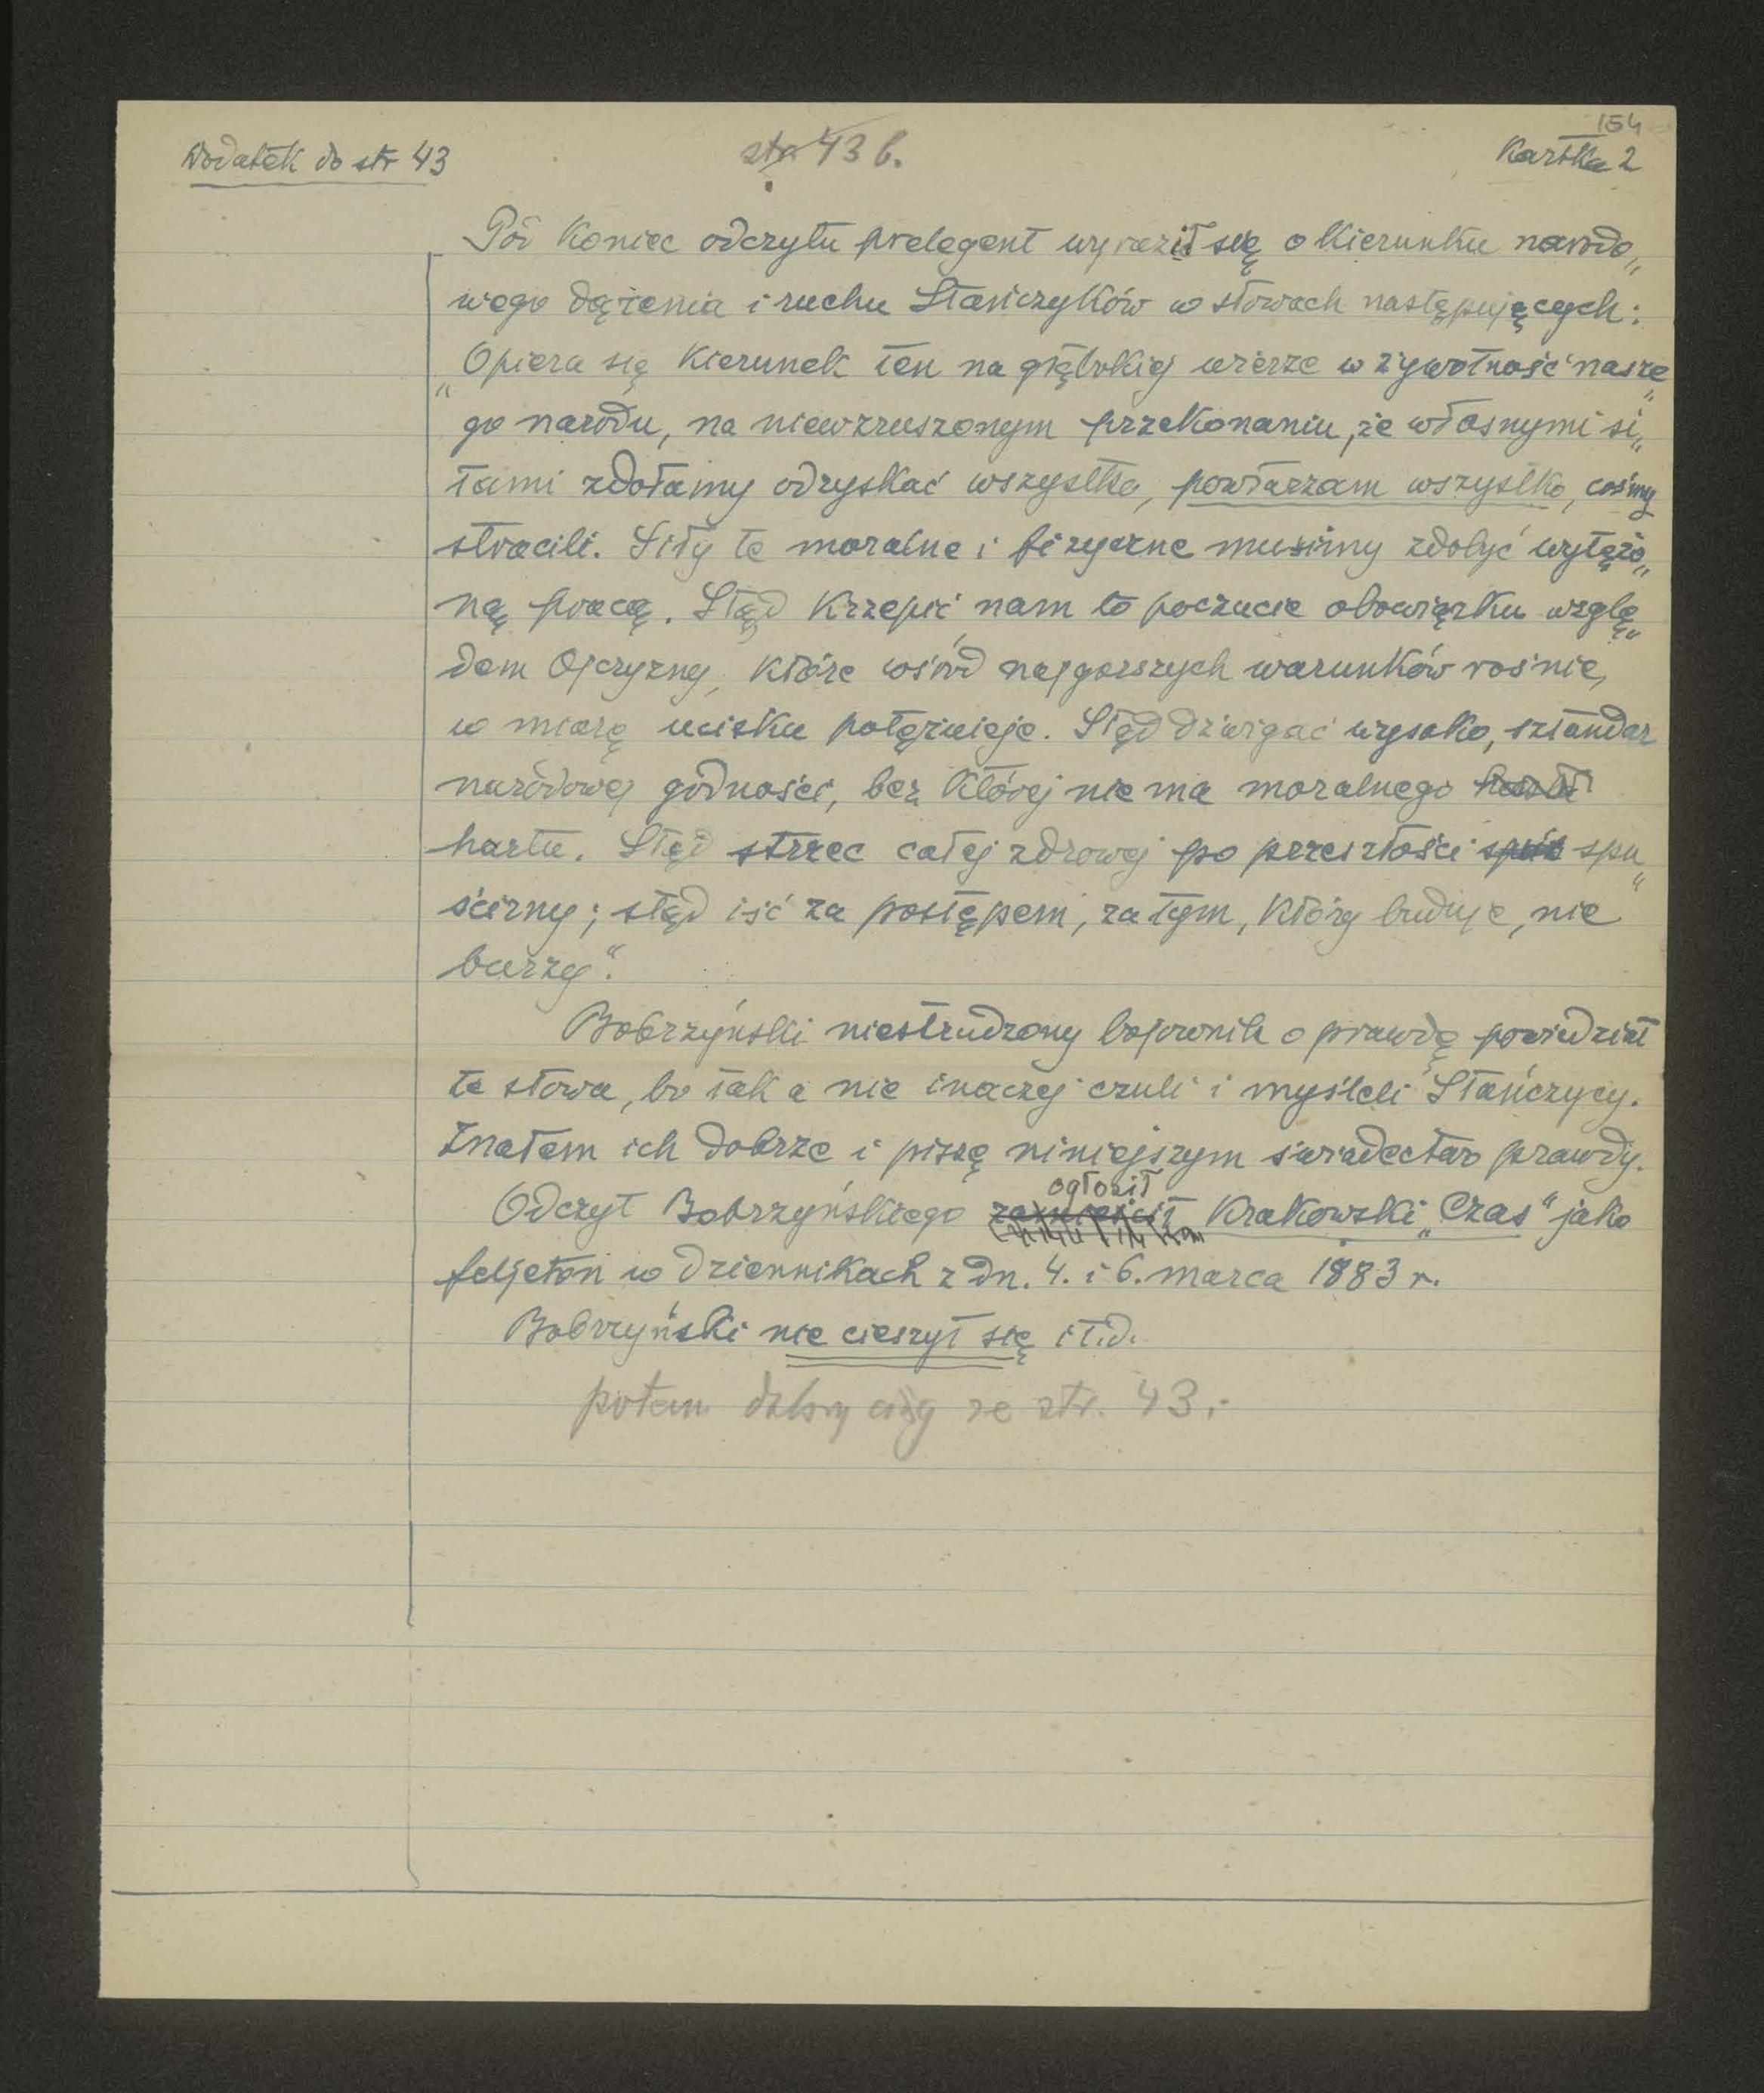 154
Dodatek do str 43
str 43 b.
Kartka 2
Pod koniec odczytu prelegent wyraził się o kierunku narodo„
wego dążenia i ruchu Stańczyków w słowach następujących:
„Opiera się kierunek ten na głębokiej wierze w żywotność nasze„
go narodu, na niewzruszonym przekonaniu, że własnymi si„
łami zdołamy odzyskać wszystko, powtarzam wszystko, cośmy
stracili. Siły te moralne i fizyczne musimy zdobyć wytężo„
ną pracą. Stąd krzepić nam to poczucie obowiązku wzglę„
dem Ojczyzny, które wśród najgorszych warunków rośnie,
w miarę ucisku potężnieje. Stąd dźwigać wysoko, sztandar
narodowej godności, bez której nie ma moralnego
hartu. Stąd strzec całej zdrowej po przeszłości spu„
ścizny; stąd iść za postępem, za tym, który buduje, nie
burzy“.
Bobrzyński niestrudzony bojownik o prawdę powiedział
te słowa, bo tak a nie inaczej czuli i myśleli Stańczycy.
Znałem ich dobrze i piszę niniejszym świadectwo prawdy.
ogłosił
Odczyt Bobrzyńskiego zamieścił Krakowski „Czas“ jako
feljeton w dziennikach z dn. 4. i 6. marca 1883 r.
Bobrzyński nie cieszył się i t.d.
potem dalszy ciąg ze str. 43.